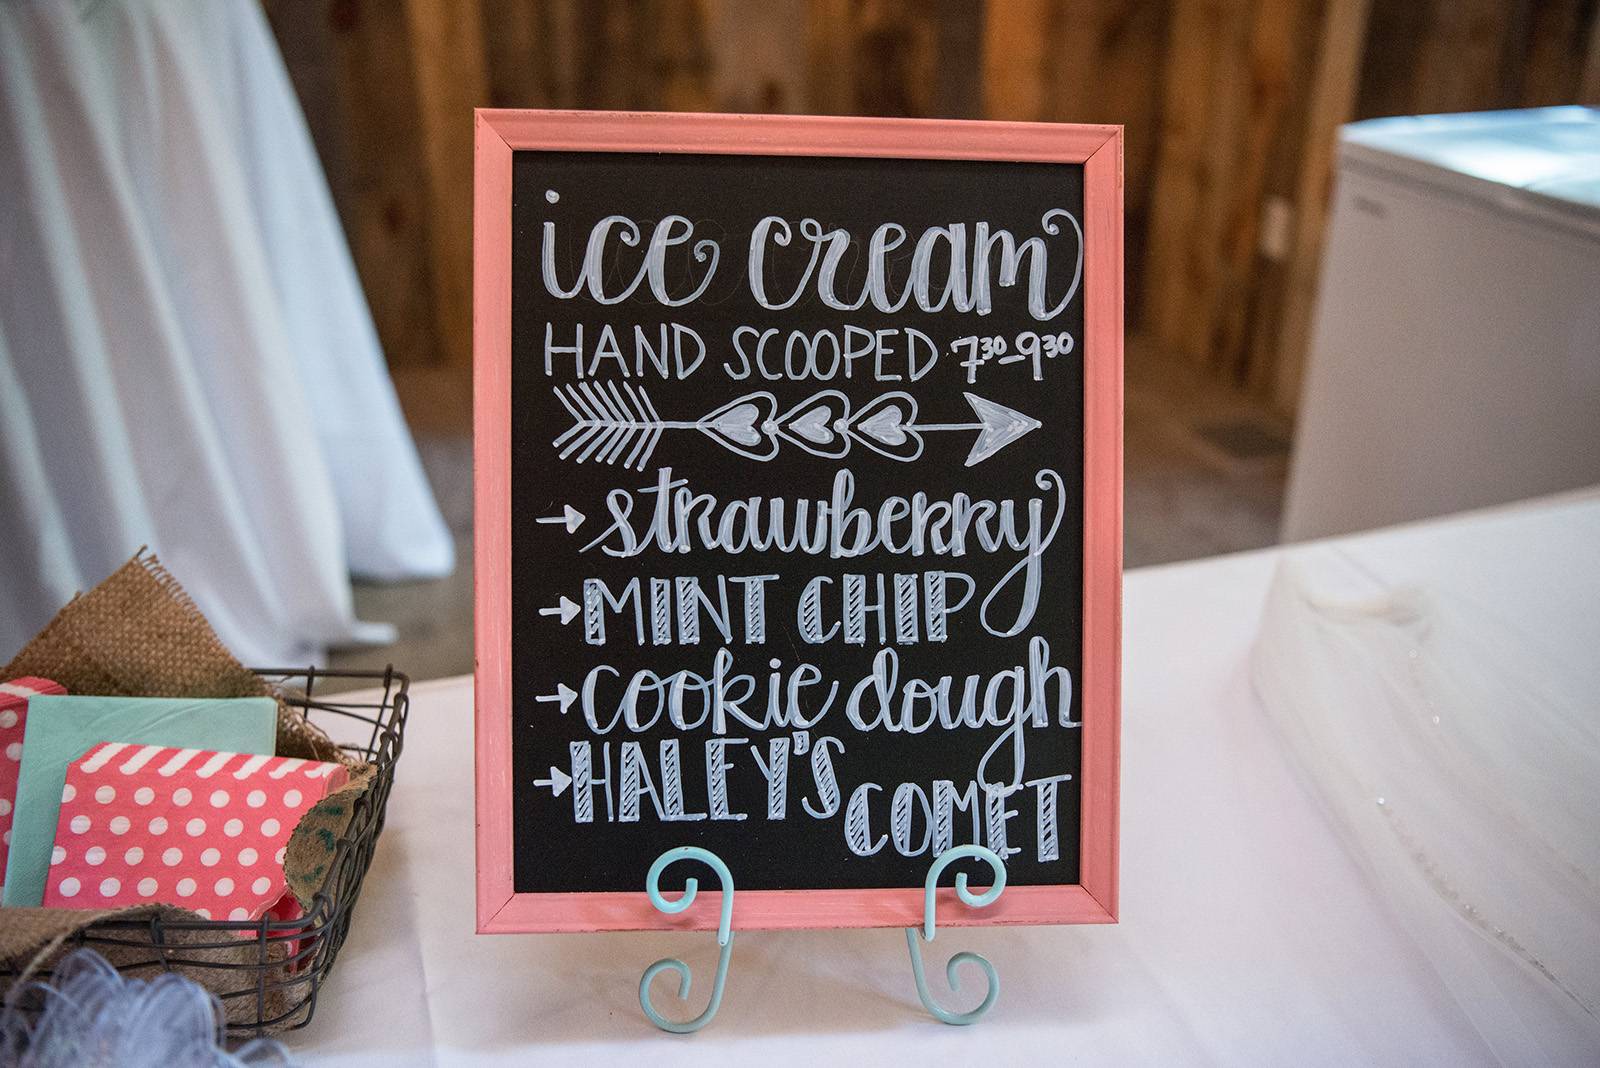 ice cream
HAND SCOOPED 7³⁰-9³⁰
strawberry
MINT CHIP
cookie dough
HALEY'S COMET